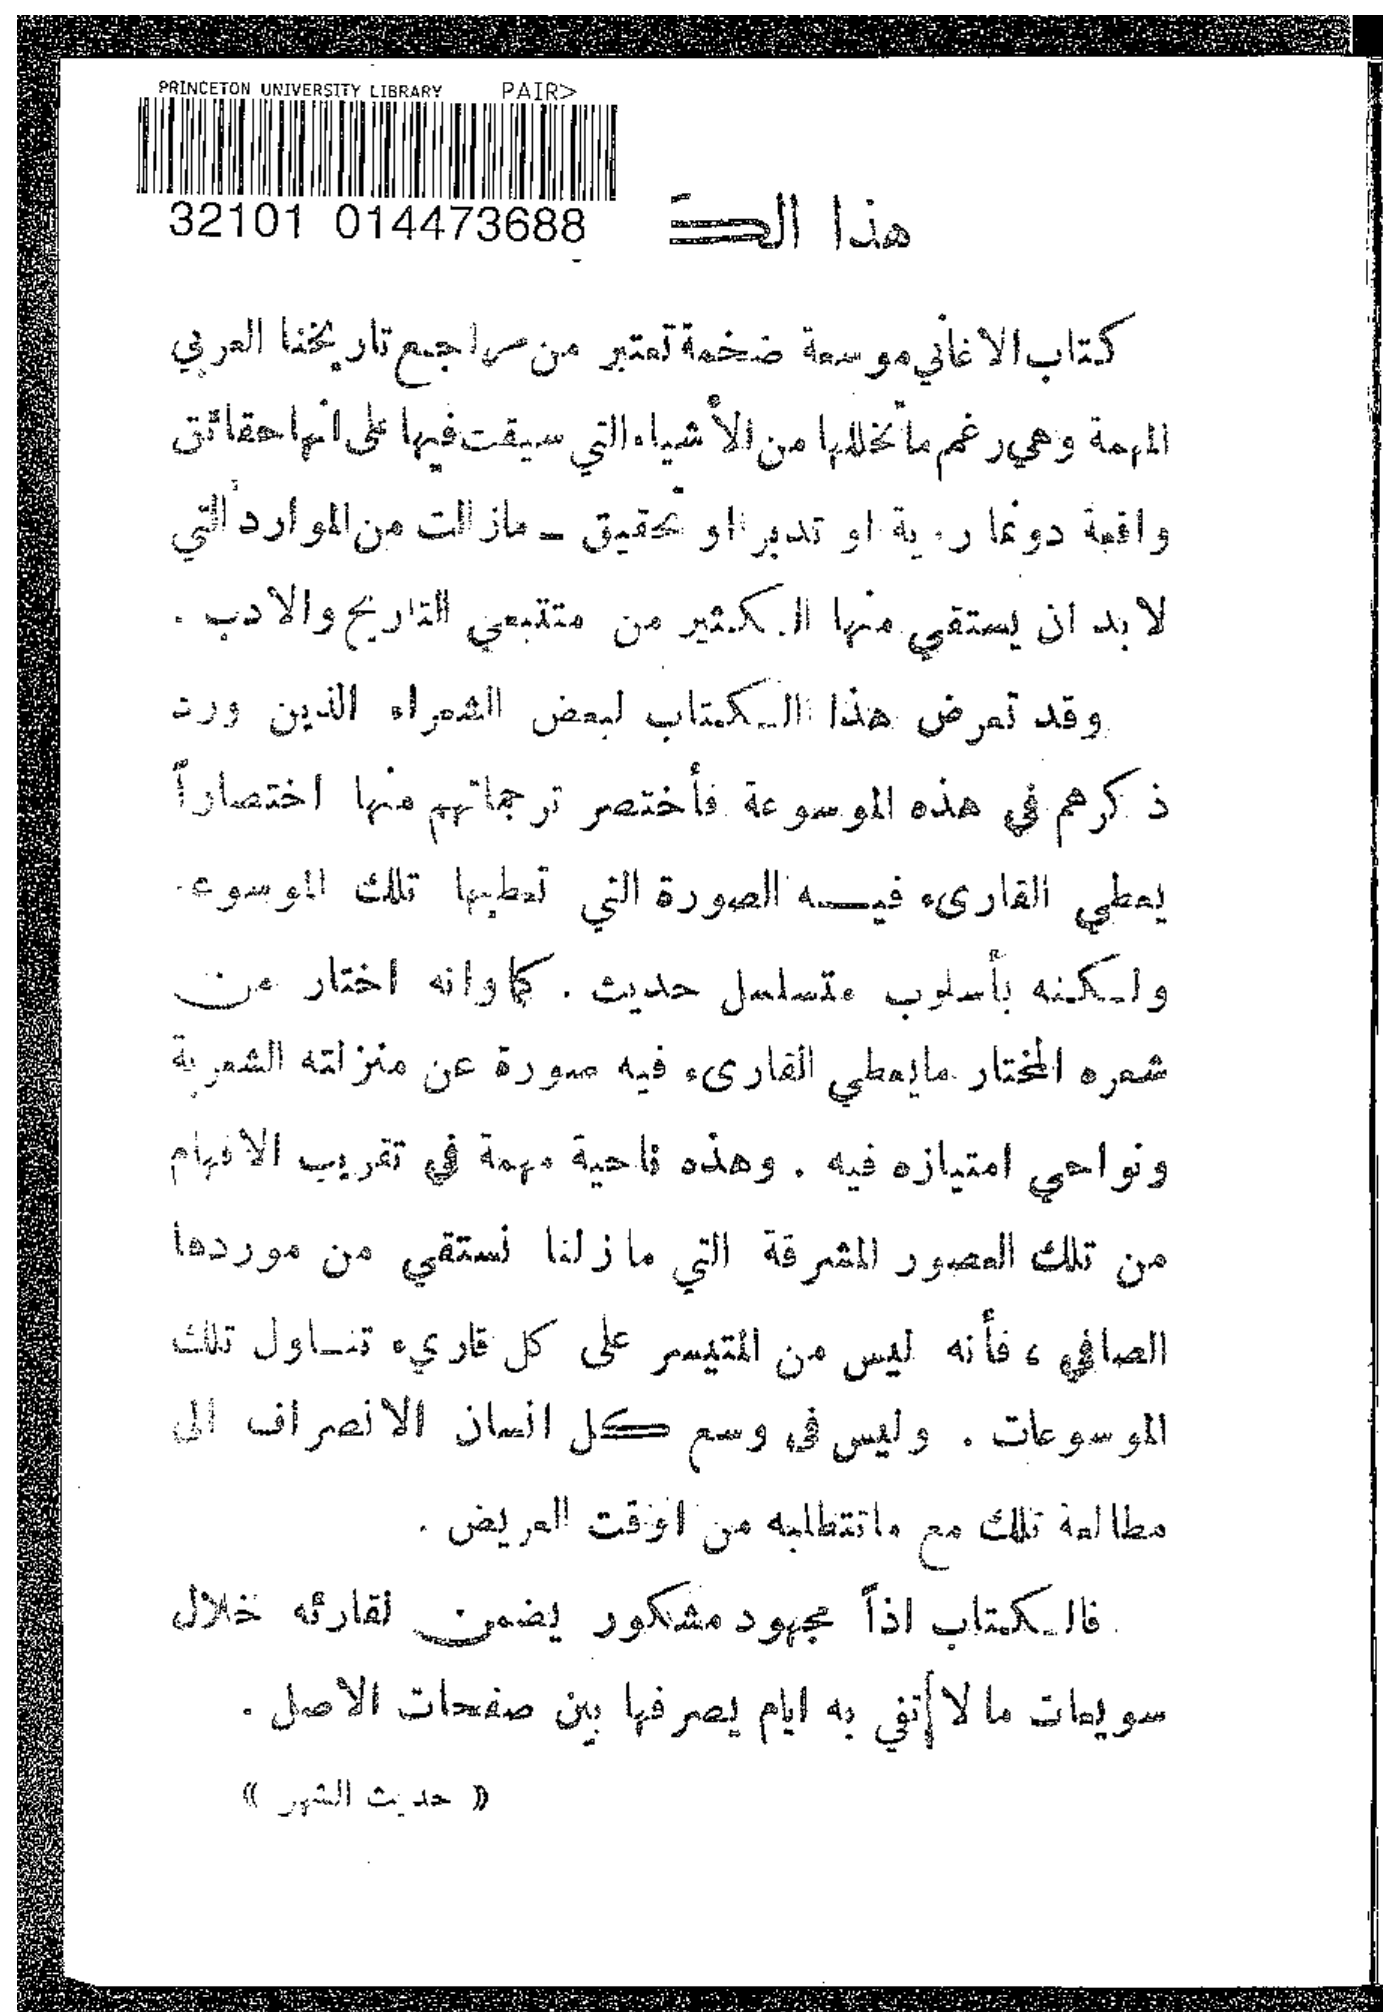 PRINCETON UNIVERSITY LIBRARY PAIR>
32101 014473688
هذا الك
كتاب الاغاني موسعة ضخمة تعتبر من مراجع تاريخنا العربي
المهمة وهي رغم ما تخللها من الأشياء التي سيقت فيها على انها حقائق
واقعة دونما روية او تدبر او تحقيق ـ مازالت من الموارد التي
لابد ان يستقي منها الكثير من متتبعي التاريخ والادب .
وقد تعرض هذا الكتاب لبعض الشعراء الذين ورد
ذكرهم في هذه الموسوعة فأختصر ترجماتهم منها اختصاراً
يعطي القارىء فيه الصورة التي تعطيها تلك الموسوعة
ولكنه بأسلوب متسلسل حديث . كما وانه اختار من
شعره المختار مايعطي القارىء فيه صورة عن منزلته الشعرية
ونواحي امتيازه فيه . وهذه ناحية مهمة في تقريب الافهام
من تلك العصور المشرقة التي مازلنا نستقي من موردها
الصافي ، فأنه ليس من المتيسر على كل قاريء تناول تلك
الموسوعات . وليس في وسع كل انسان الانصراف الى
مطالعة تلك مع ماتتطلبه من الوقت العريض .
فالكتاب اذاً مجهود مشكور يضمن لقارئه خلال
سويعات ما لا تفي به ايام يصرفها بين صفحات الاصل .
« حديث الشهر »